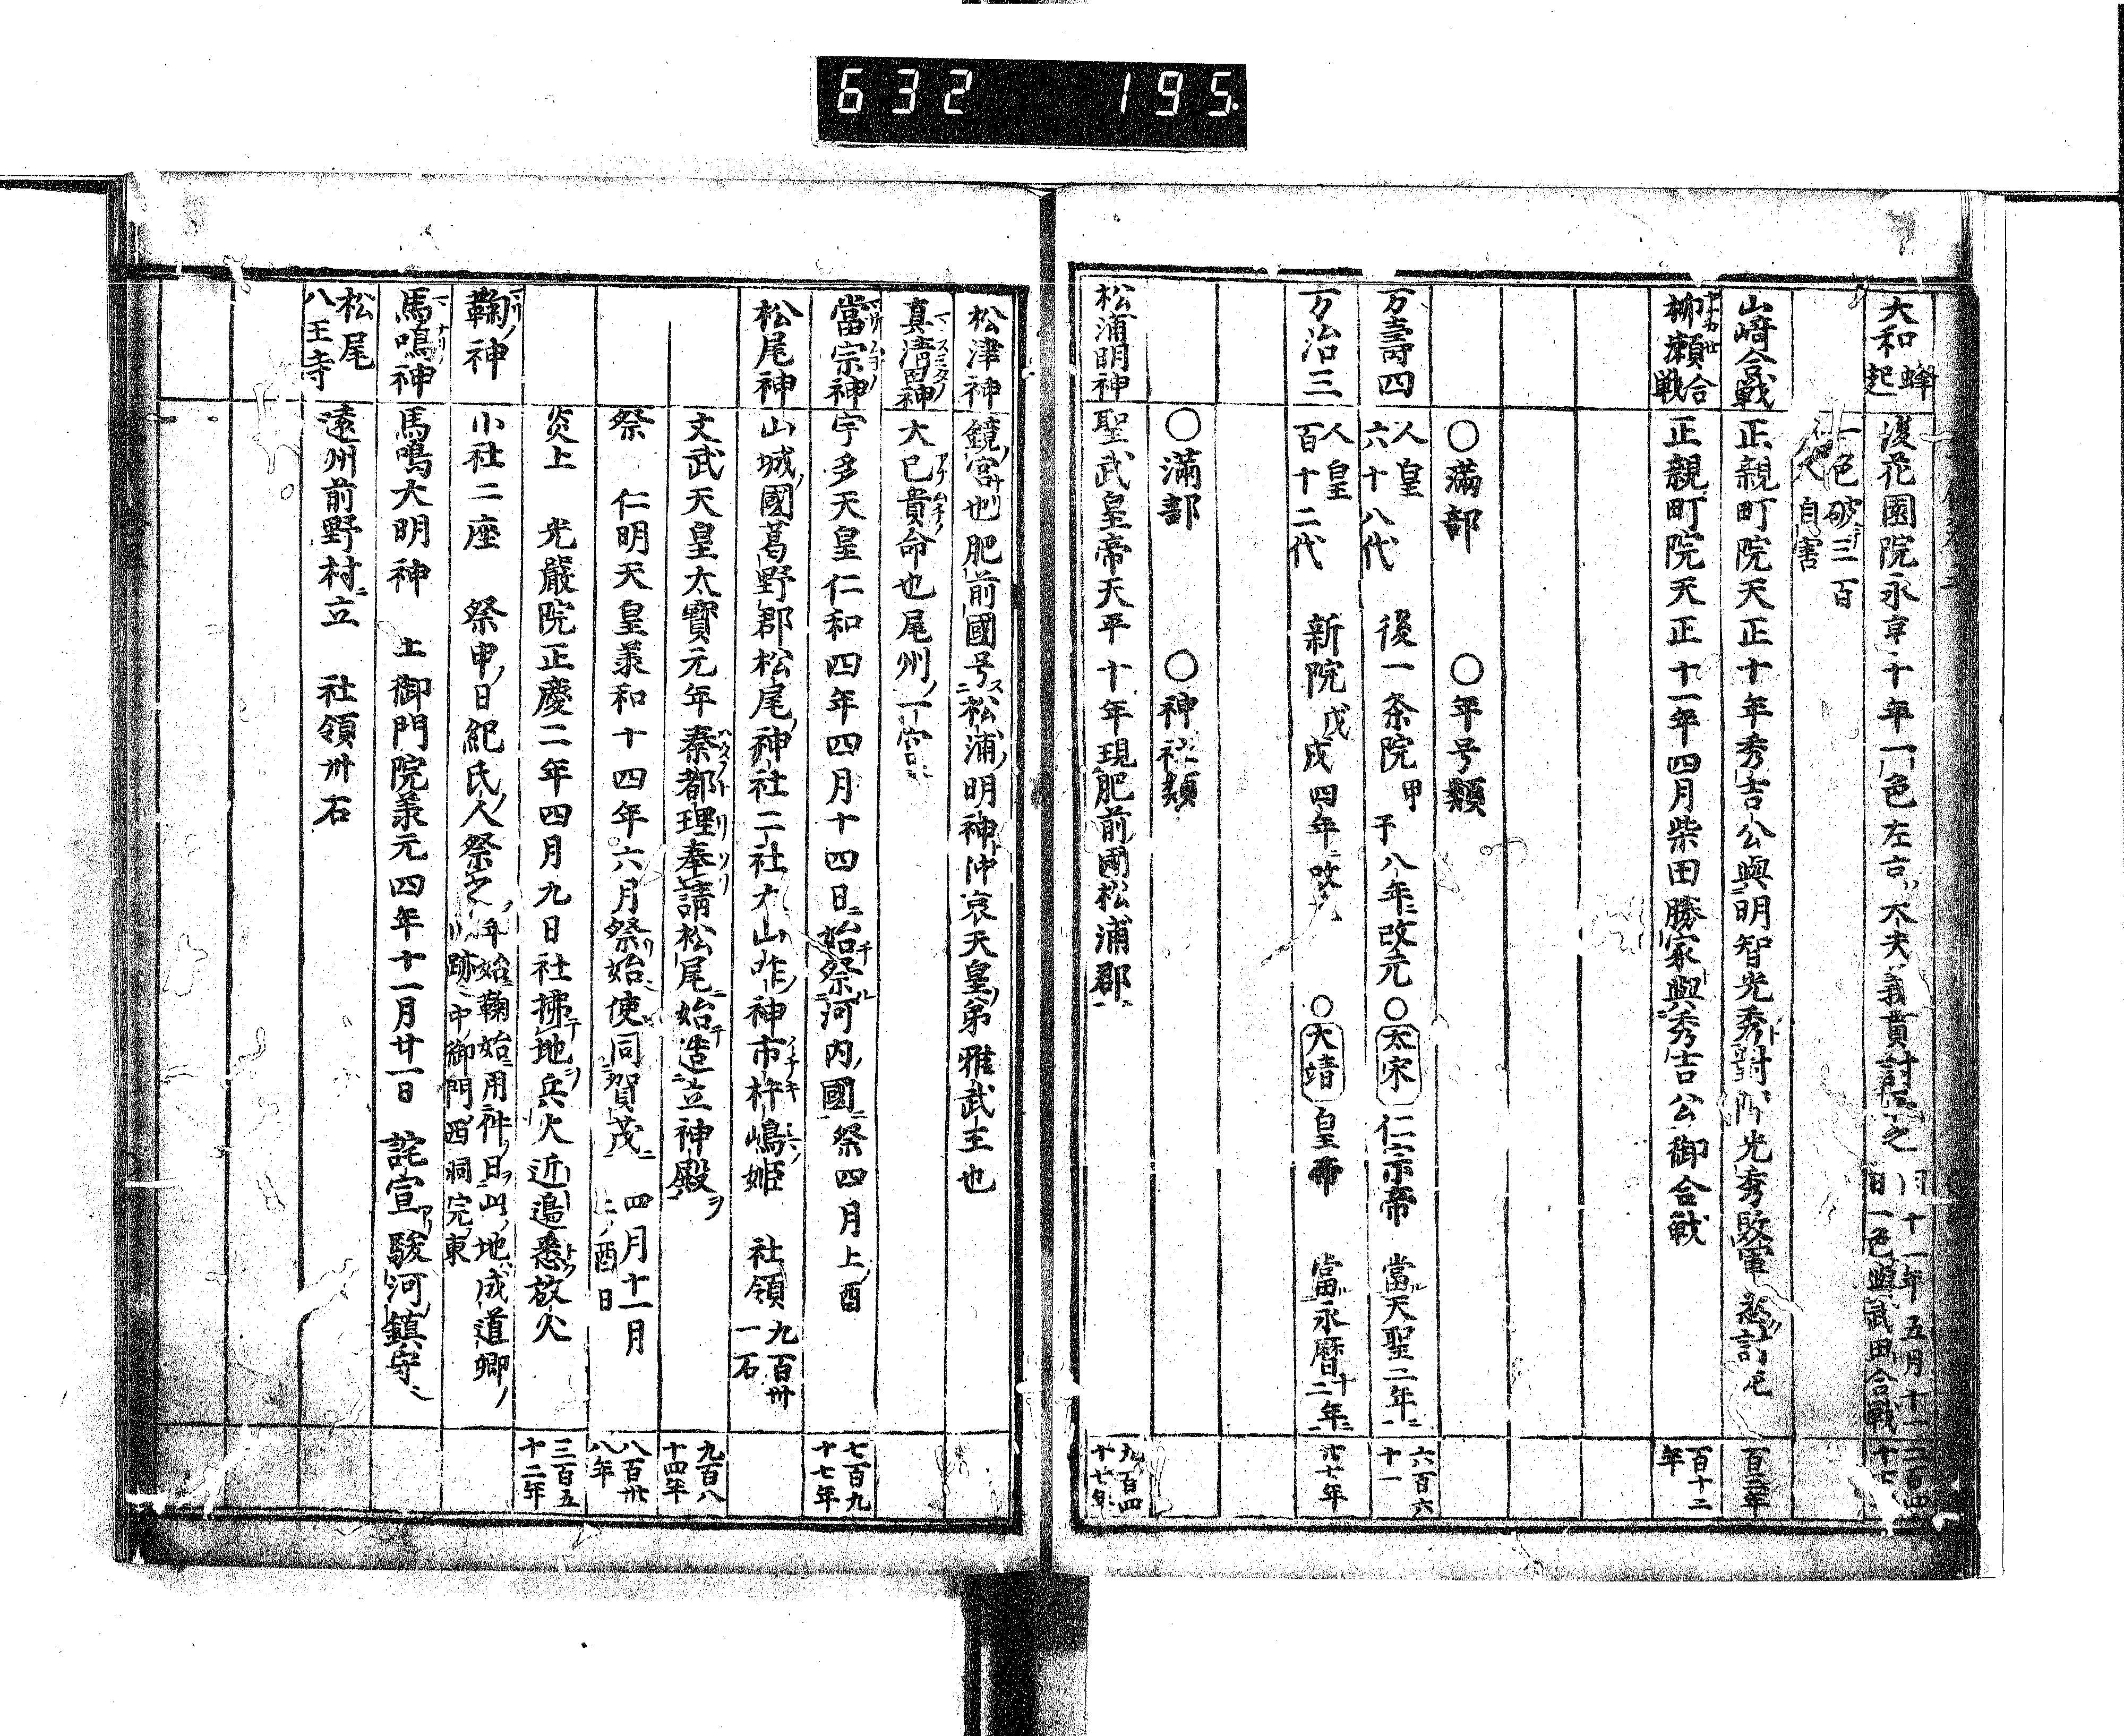 632 195.
大和蜂起 後花園院永享十年一色左京大夫義貫討 之 同十一年五月十一日一色與武田合戰
一色破 三百人自害
山﨑合戰 正親町院天正十年秀吉公與明智光秀對陣光秀敗軍 百三年
柳瀬合戰 正親町院天正十一年四月柴田勝家與秀吉公御合戰 百十二年
○滿部 ○年号類
万壽四 人皇六十八代 後一条院 甲子八年改元 ○太宋 仁宗帝 當天聖二年 六百六十一
万治三 人皇百十二代 新院 戊戌四年改元 ○大靖 皇帝 當永暦十二年 廿七年
○滿部 ○神社類
松浦明神 聖武皇帝天平十年現肥前國松浦郡 九百四十七年
松津神 鏡宮也肥前國号松浦明神仲哀天皇弟雅武王也
真清田神 大己貴命也尾州一宮
當宗神 宇多天皇仁和四年四月十四日始祭河内國 祭四月上酉 七百九十七年
松尾神 山城國葛野郡松尾神社二社大山咋神市杵嶋姫 社領九百卅一石
文武天皇太寳元年秦都理奉請松尾始造立神殿 九百八十四年
祭 仁明天皇羕和十四年六月祭始使同賀茂 四月十一月上ノ酉日 八百卅八年
炎上 光嚴院正慶二年四月九日社拂地兵火近邉悉放火 三百五十二年
鞠神 小社二座 祭申日紀氏人祭之 年始鞠始用件日此地成道卿ノ跡中御門西洞完東
馬鳴神 馬鳴大明神 土御門院羕元四年十一月廿一日 詫宣駿河鎮守
松尾八王寺 遠州前野村立 社領卅石